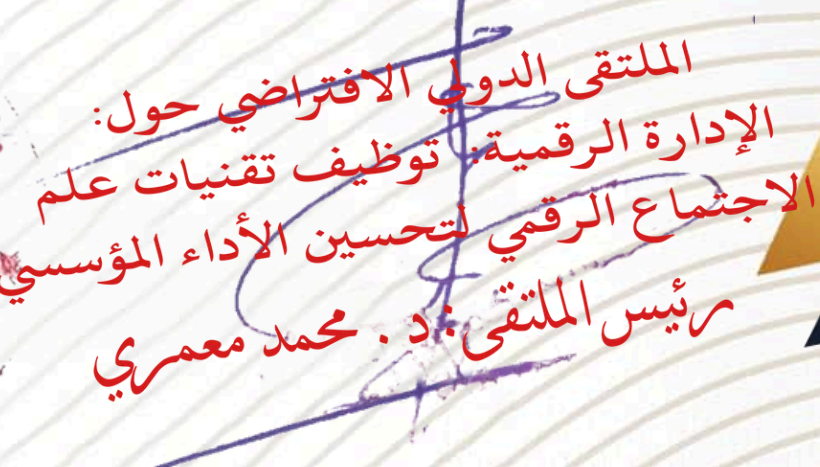 الملتقى الدولي الافتراضي حول:
الإدارة الرقمية: توظيف تقنيات علم
الاجتماع الرقمي لتحسين الأداء المؤسسي
رئيس الملتقى: د . محمد معمري